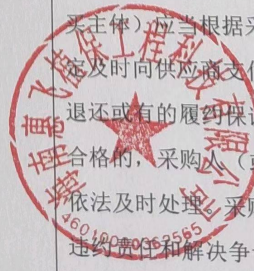 买主体）应当根据采
定及时向供应商支付
退还或有的履约保证
合格的，采购人（或
依法及时处理。采购
违约责任和解决争
海南惠飞
环保工程科技有限公司